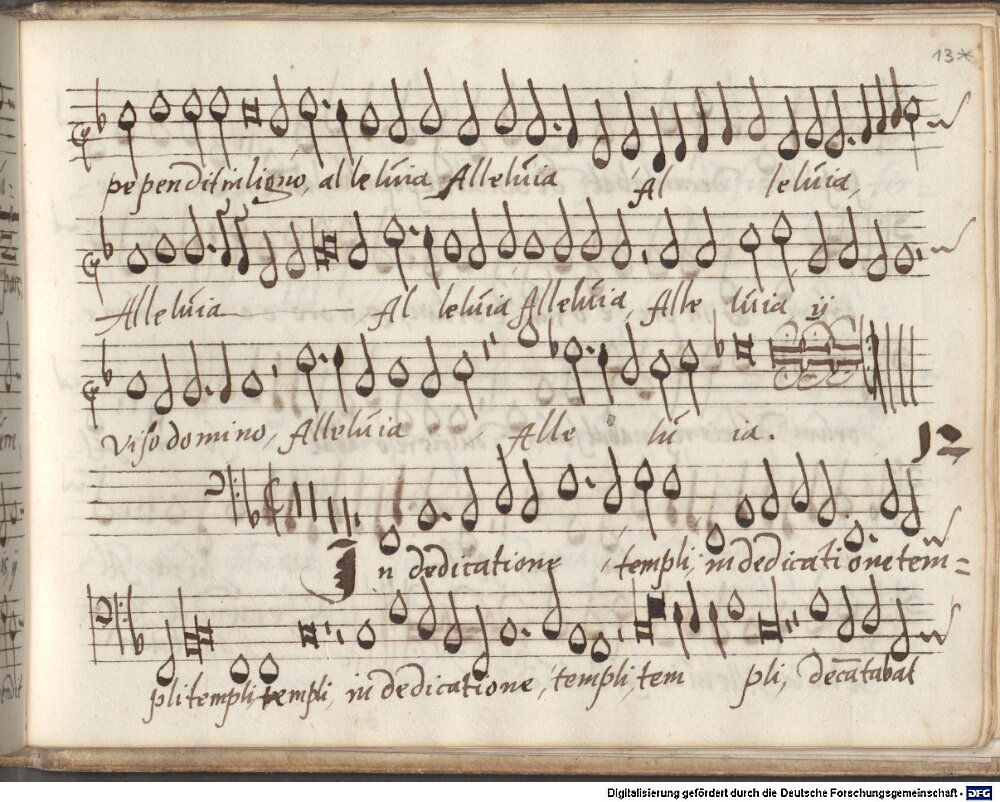 13*
pependit in ligno, alleluia Alleluia Al leluia,
Alleluia Al leluia Alleluia, Alle luia ij
viso domino, Alleluia Alle lu ia.
12
In dedicatione templi, in dedicatione tem=
pli templi, templi, in dedicatione, templi, tem pli, decātabat
Digitalisierung gefördert durch die Deutsche Forschungsgemeinschaft - DFG